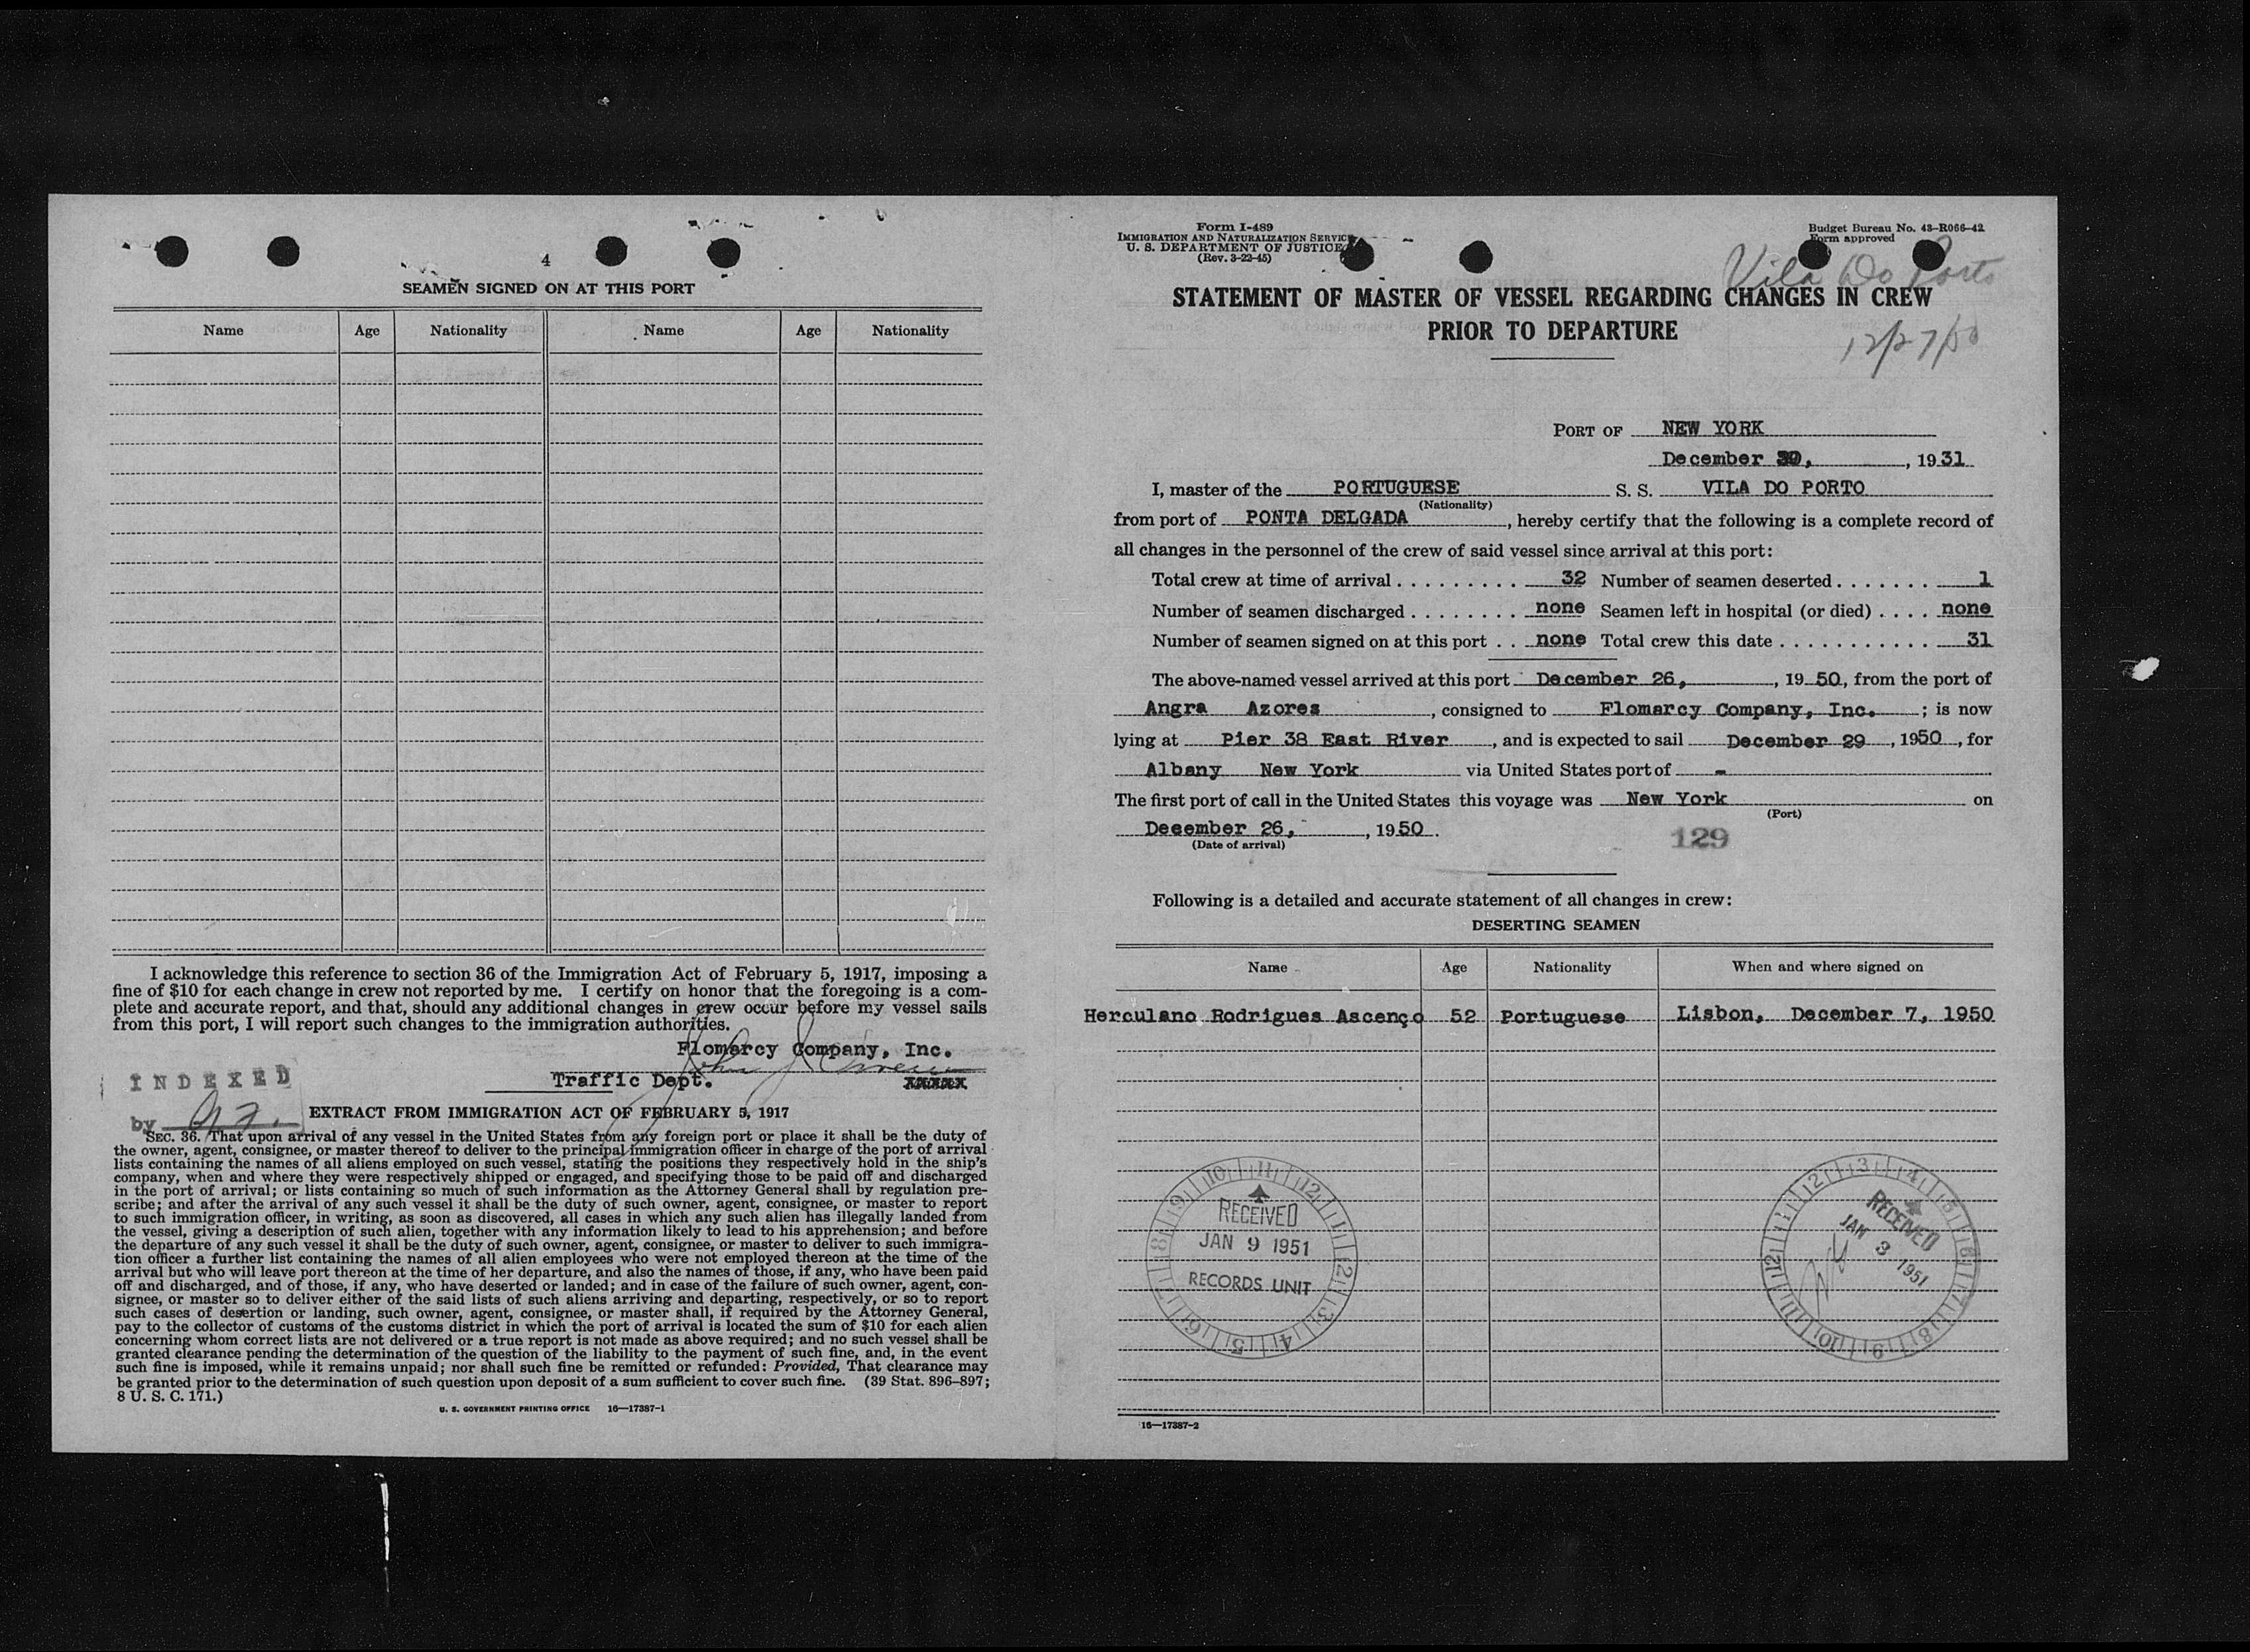 4
SEAMEN SIGNED ON AT THIS PORT
Name Age Nationality Name Age Nationality
I acknowledge this reference to section 36 of the Immigration Act of February 5, 1917, imposing a
fine of $10 for each change in crew not reported by me. I certify on honor that the foregoing is a com-
plete and accurate report, and that, should any additional changes in crew occur before my vessel sails
from this port, I will report such changes to the immigration authorities.
Flomarcy Company, Inc.
Traffic Dept.
INDEXED
by
EXTRACT FROM IMMIGRATION ACT OF FEBRUARY 5, 1917
SEC. 36. That upon arrival of any vessel in the United States from any foreign port or place it shall be the duty of
the owner, agent, consignee, or master thereof to deliver to the principal immigration officer in charge of the port of arrival
lists containing the names of all aliens employed on such vessel, stating the positions they respectively hold in the ship's
company, when and where they were respectively shipped or engaged, and specifying those to be paid off and discharged
in the port of arrival; or lists containing so much of such information as the Attorney General shall by regulation pre-
scribe; and after the arrival of any such vessel it shall be the duty of such owner, agent, consignee, or master to report
to such immigration officer, in writing, as soon as discovered, all cases in which any such alien has illegally landed from
the vessel, giving a description of such alien, together with any information likely to lead to his apprehension; and before
the departure of any such vessel it shall be the duty of such owner, agent, consignee, or master to deliver to such immigra-
tion officer a further list containing the names of all alien employees who were not employed thereon at the time of the
arrival but who will leave port thereon at the time of her departure, and also the names of those, if any, who have been paid
off and discharged, and of those, if any, who have deserted or landed; and in case of the failure of such owner, agent, con-
signee, or master so to deliver either of the said lists of such aliens arriving and departing, respectively, or so to report
such cases of desertion or landing, such owner, agent, consignee, or master shall, if required by the Attorney General,
pay to the collector of customs of the customs district in which the port of arrival is located the sum of $10 for each alien
concerning whom correct lists are not delivered or a true report is not made as above required; and no such vessel shall be
granted clearance pending the determination of the question of the liability to the payment of such fine, and, in the event
such fine is imposed, while it remains unpaid; nor shall such fine be remitted or refunded: Provided, That clearance may
be granted prior to the determination of such question upon deposit of a sum sufficient to cover such fine. (39 Stat. 896–897;
8 U. S. C. 171.)
U. S. GOVERNMENT PRINTING OFFICE 16—17387-1
Form I-489
IMMIGRATION AND NATURALIZATION SERVICE
U. S. DEPARTMENT OF JUSTICE
(Rev. 3-22-45)
Budget Bureau No. 43-R066-42
Form approved
Vila Do Porto
STATEMENT OF MASTER OF VESSEL REGARDING CHANGES IN CREW
PRIOR TO DEPARTURE
12/27/50
PORT OF NEW YORK
December , 1931
I, master of the PORTUGUESE S. S. VILA DO PORTO
(Nationality)
from port of PONTA DELGADA, hereby certify that the following is a complete record of
all changes in the personnel of the crew of said vessel since arrival at this port:
Total crew at time of arrival . . . . . . . . . 32 Number of seamen deserted . . . . . . . 1
Number of seamen discharged . . . . . . . . none Seamen left in hospital (or died) . . . . none
Number of seamen signed on at this port . . none Total crew this date . . . . . . . . . . . 31
The above-named vessel arrived at this port December 26, , 1950, from the port of
Angra Azores , consigned to Flomarcy Company, Inc. ; is now
lying at Pier 38 East River , and is expected to sail December 29 , 1950 , for
Albany New York via United States port of -
The first port of call in the United States this voyage was New York on
(Port)
Deeember 26, , 1950 .
(Date of arrival)
129
Following is a detailed and accurate statement of all changes in crew:
DESERTING SEAMEN
Name Age Nationality When and where signed on
Herculano Rodrigues Ascenço 52 Portuguese Lisbon, December 7, 1950
RECEIVED
JAN 9 1951
RECORDS UNIT
RECEIVED
JAN 3 1951
16—17387-2